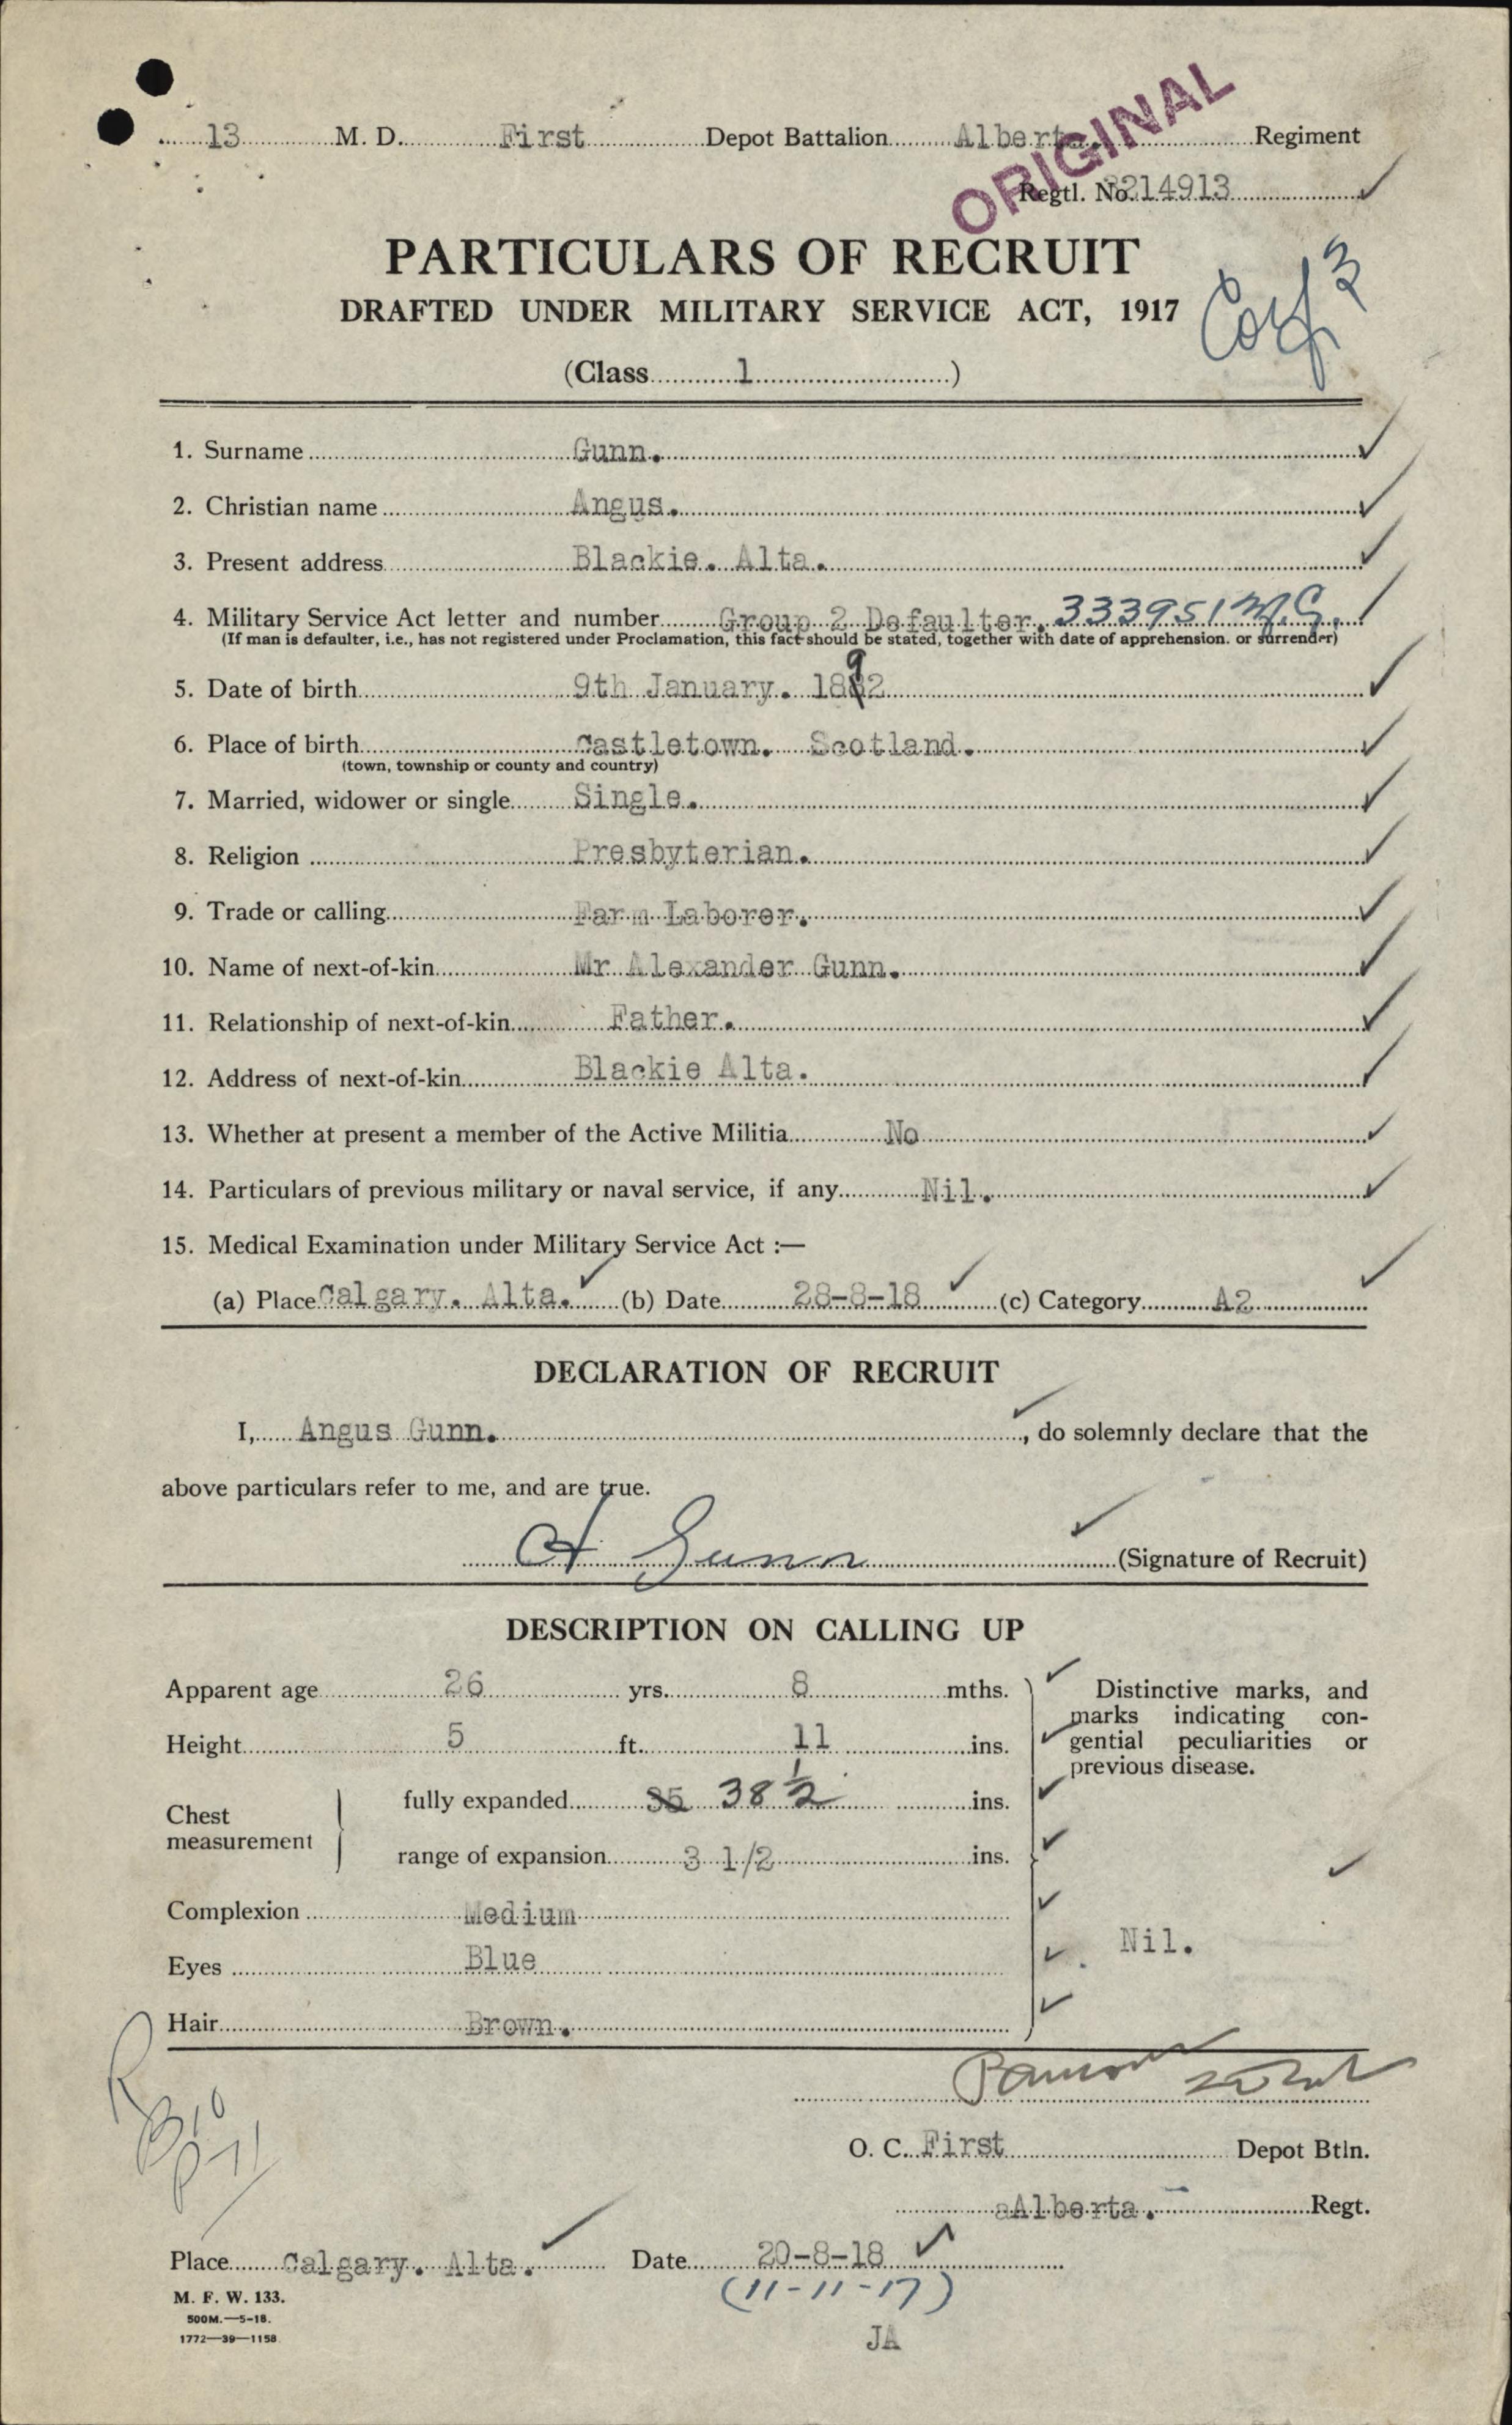 13 M. D. First Depot Battalion Alberta. Regiment
ORIGINAL
Regtl. No. 3214913
PARTICULARS OF RECRUIT
DRAFTED UNDER MILITARY SERVICE ACT, 1917
(Class 1 )
1. Surname Gunn.
2. Christian name Angus.
3. Present address Blackie. Alta.
4. Military Service Act letter and number Group 2 Defaulter. 333951
(If man is defaulter, i.e., has not registered under Proclamation, this fact should be stated, together with date of apprehension. or surrender)
5. Date of birth 9th January. 1892
6. Place of birth Castletown. Scotland.
(town, township or county and country)
7. Married, widower or single Single.
8. Religion Presbyterian.
9. Trade or calling Farm Laborer.
10. Name of next-of-kin Mr Alexander Gunn.
11. Relationship of next-of-kin Father.
12. Address of next-of-kin Blackie Alta.
13. Whether at present a member of the Active Militia No
14. Particulars of previous military or naval service, if any Nil.
15. Medical Examination under Military Service Act :—
(a) Place Calgary. Alta. (b) Date 28-8-18 (c) Category A2
DECLARATION OF RECRUIT
I, Angus Gunn. , do solemnly declare that the
above particulars refer to me, and are true.
A Gunn (Signature of Recruit)
DESCRIPTION ON CALLING UP
Apparent age 26 yrs. 8 mths.
Height 5 ft. 11 ins.
Chest measurement
fully expanded 35 38 1/2 ins.
range of expansion 3 1/2 ins.
Complexion Medium
Eyes Blue
Hair Brown.
Distinctive marks, and
marks indicating con-
gential peculiarities or
previous disease.
Nil.
O. C. First Depot Btln.
aAlberta. Regt.
Place Calgary. Alta. Date 20-8-18
(11-11-17)
M. F. W. 133.
500M.—5-18.
1772—39—1158
JA